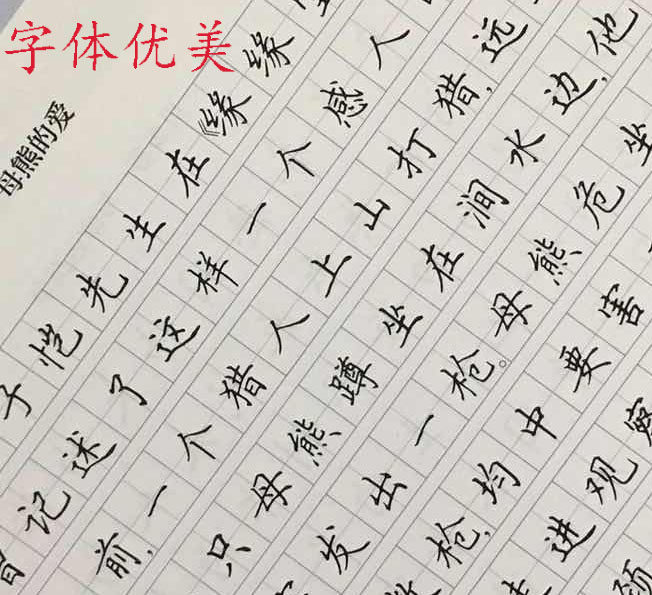 字体优美
母熊的爱
子恺先生在《缘缘
记述了这样一个感人
前,一个猎人上山打猎,远
只母熊蹲坐在涧水边,他
发出一枪。母熊危坐
枪,均中要害
进观察